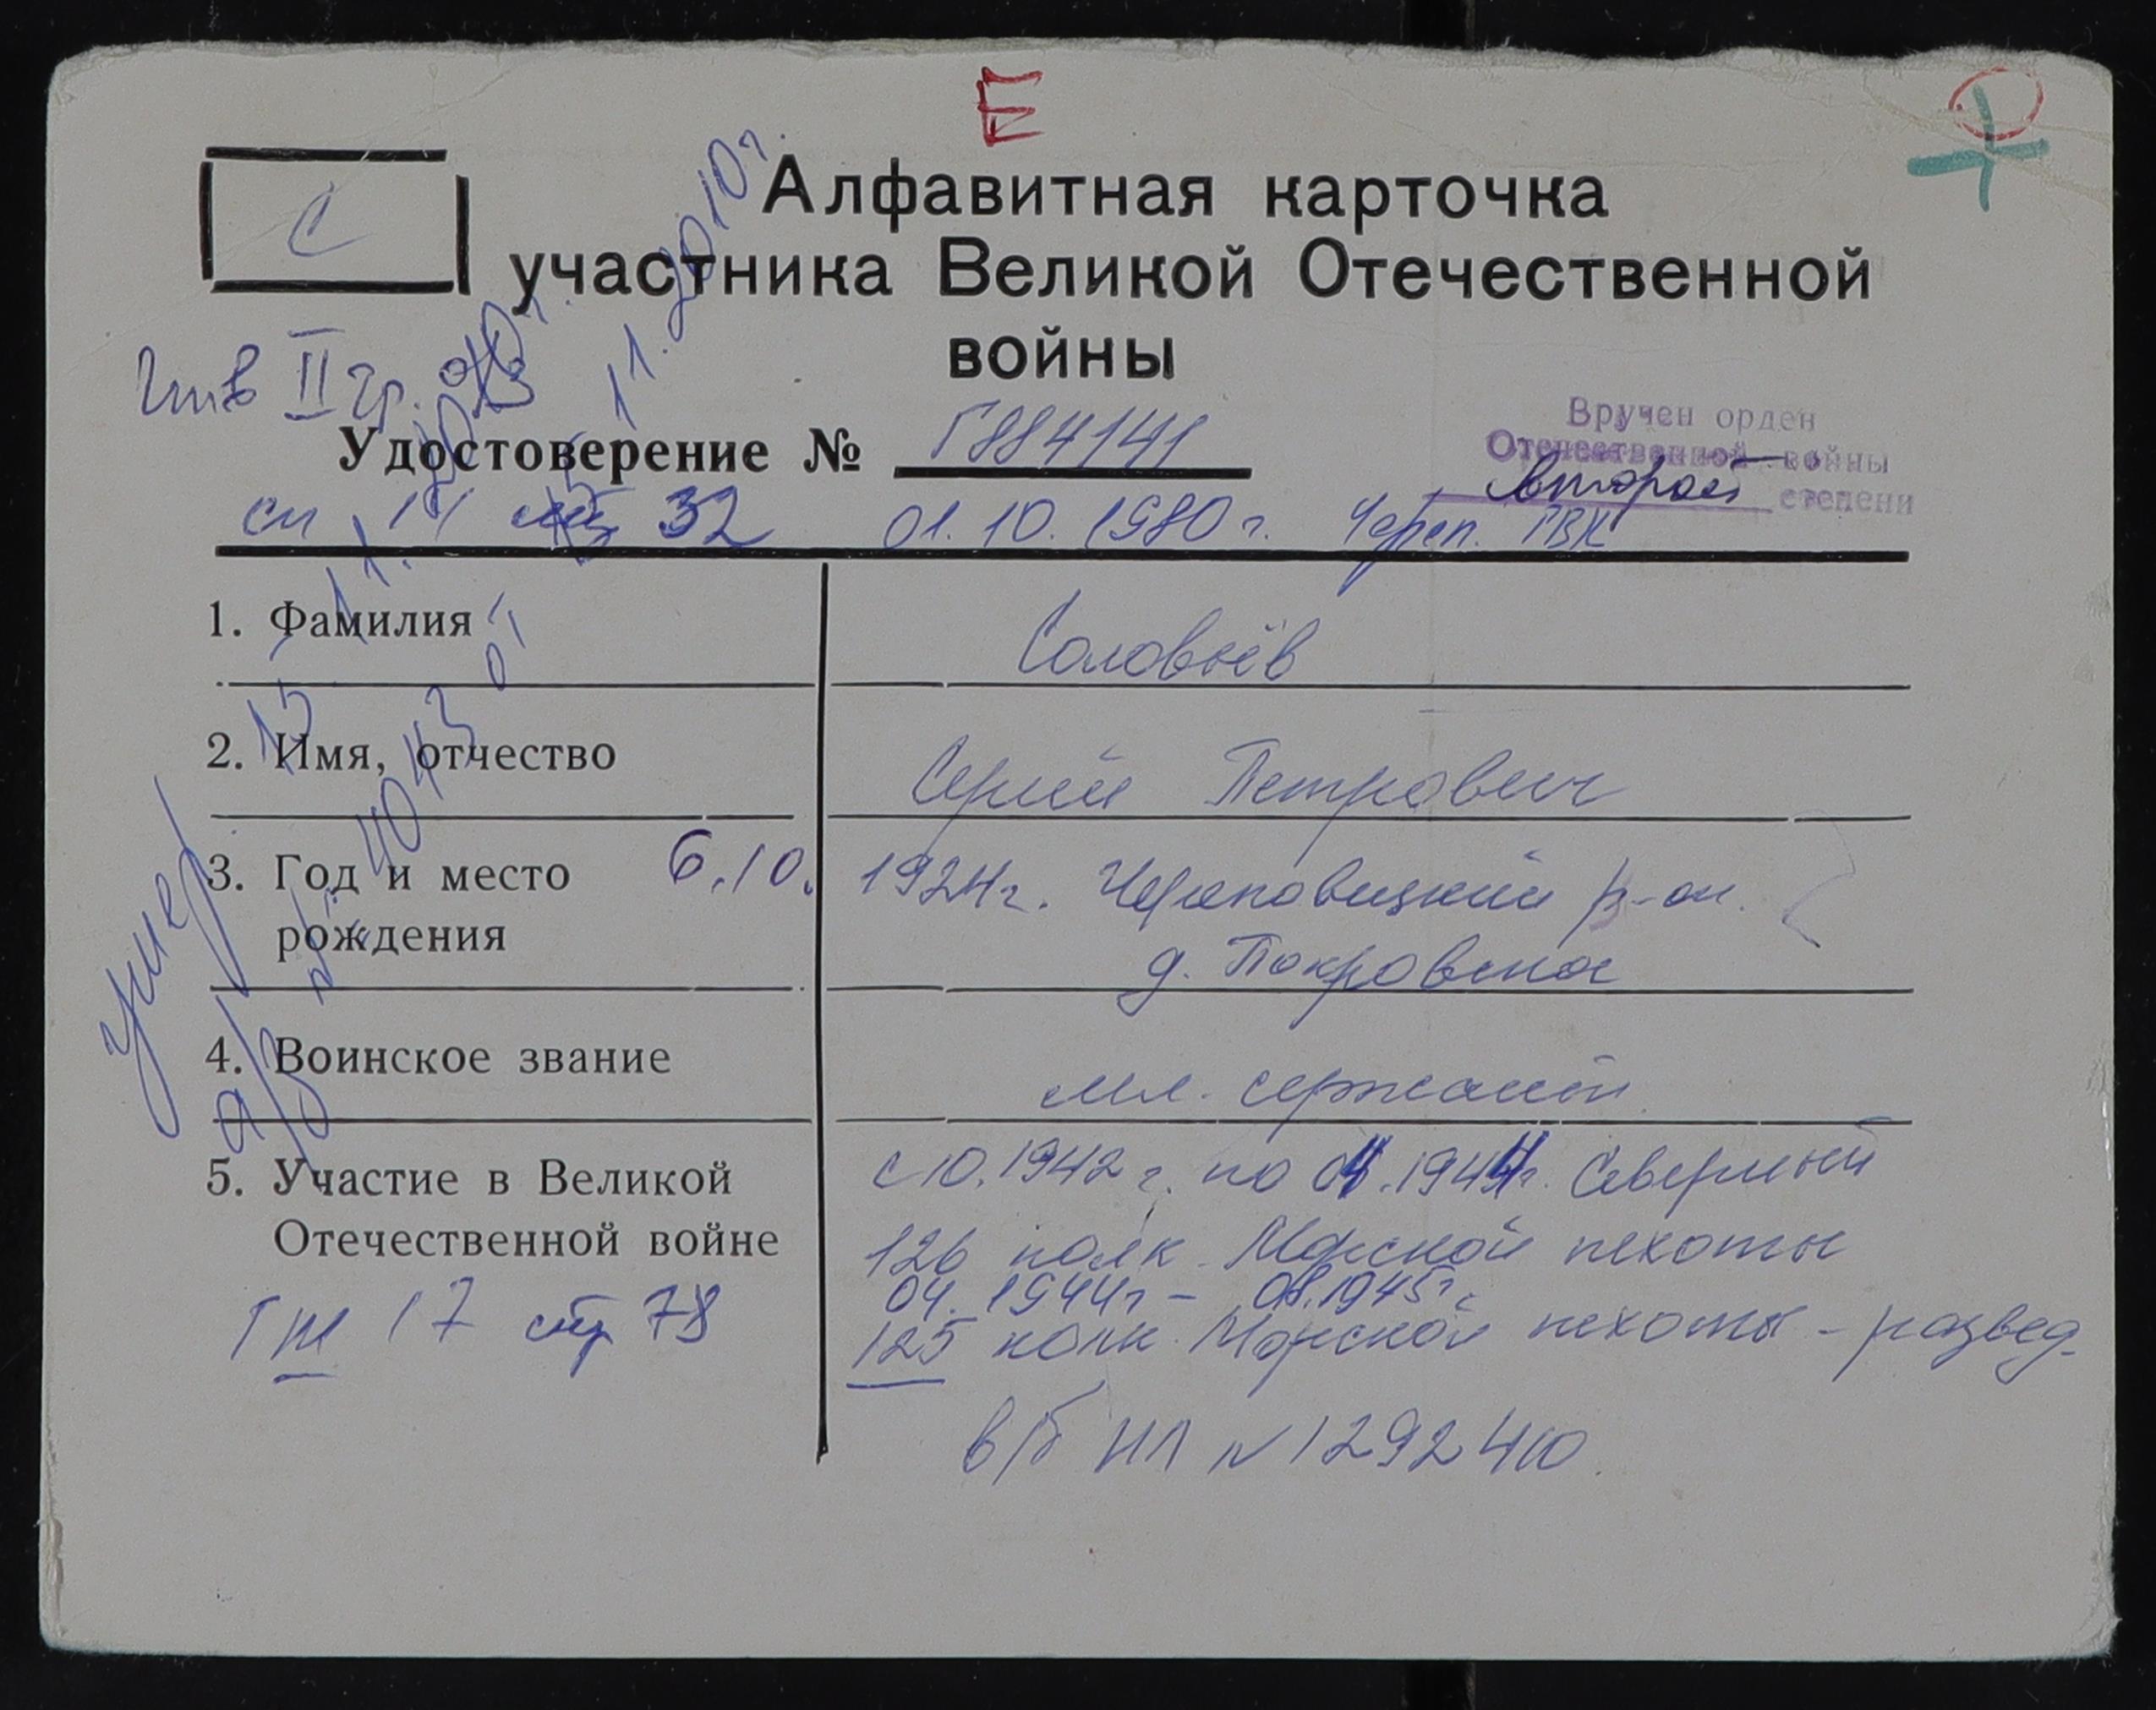 Е
Алфавитная карточка
С
участника Великой Отечественной
войны
Инв II гр.
11.2010г.
Вручен орден
Отечественной войны
второй степени
Удостоверение № Г884141
сп 14 стр 32 01.10.1980г. Череп. ГВК
1. Фамилия Соловьёв
2. Имя, отчество Сергей Петрович
3. Год и место 6.10. 1924г. Череповецкий р-он.
рождения д. Покровское
умер
а/з
4. Воинское звание мл. сержант
5. Участие в Великой с 10.1942г. по 04.1944г. Северный
Отечественной войне 126 полк Морской пехоты
04.1944г - 08.1945г.
17 стр 78 125 полк Морской пехоты - развед.
в/б НЛ № 1292410.